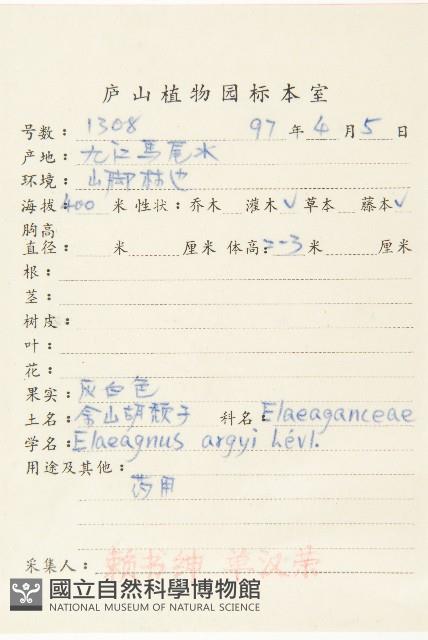 庐山植物园标本室
号数：1308 97年4月5日
产地：九江马尾水
环境：山脚林边
海拔：400米 性状：乔木 灌木√ 草本 藤本√
胸高
直径： 米 厘米 体高：2-3米 厘米
根：
茎：
树皮：
叶：
花：
果实：灰白色
土名：余山胡颓子 科名：Elaeaganceae
学名：Elaeagnus argyi Lévl.
用途及其他：
药用
采集人：赖书绅 单汉荣
國立自然科學博物館
NATIONAL MUSEUM OF NATURAL SCIENCE